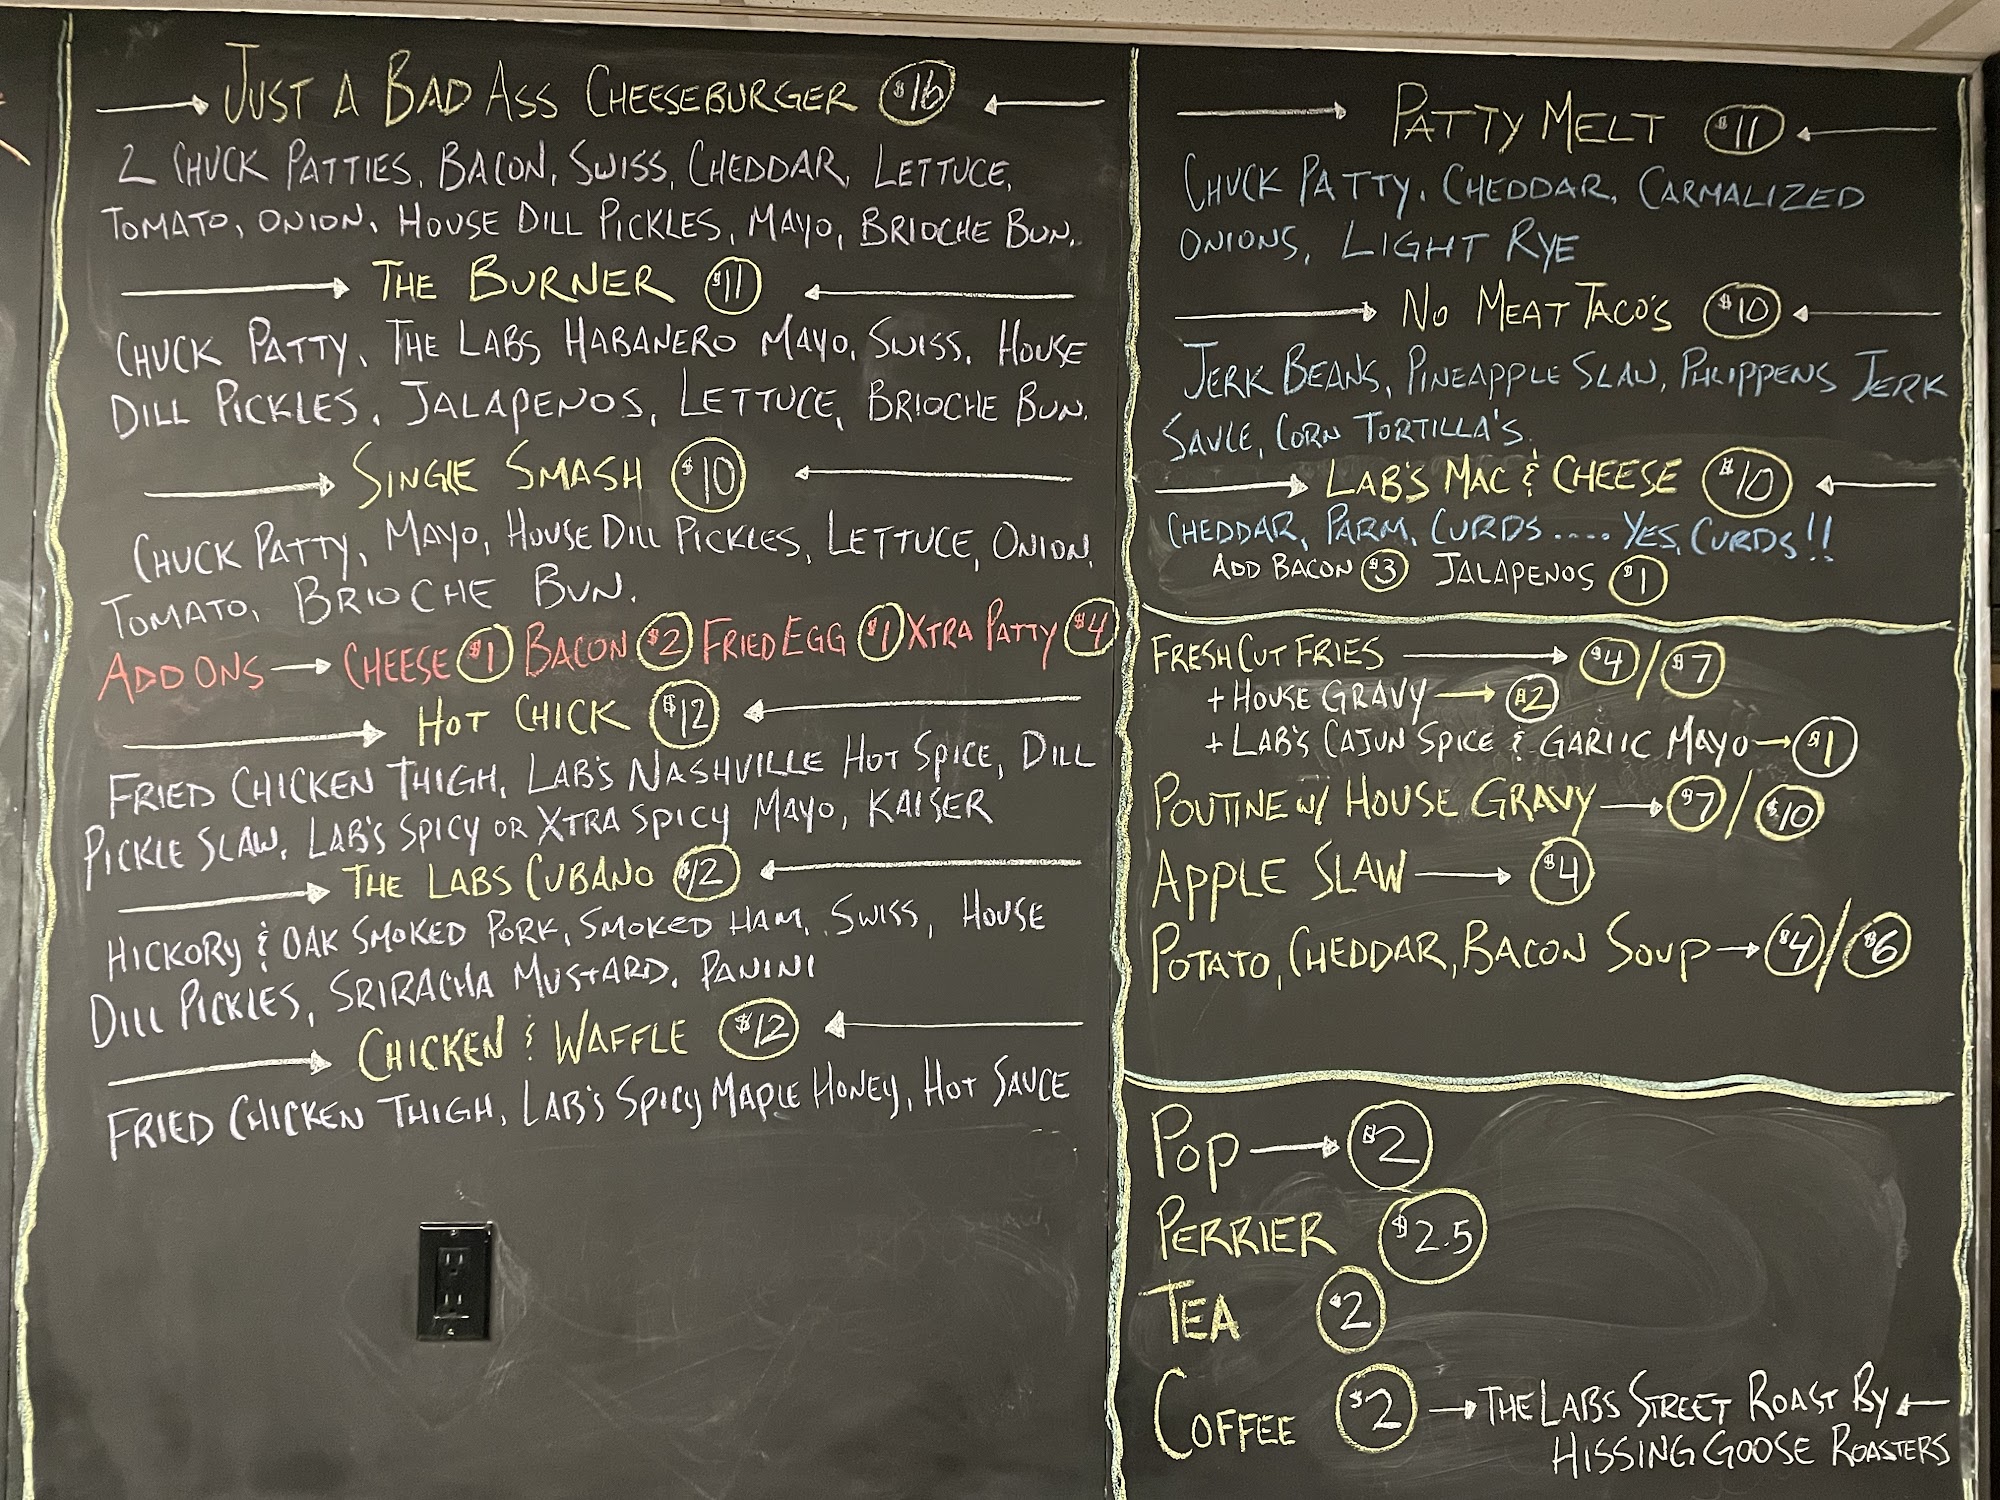 JUST A BAD ASS CHEESEBURGER $16
2 CHUCK PATTIES, BACON, SWISS, CHEDDAR, LETTUCE,
TOMATO, ONION, HOUSE DILL PICKLES, MAYO, BRIOCHE BUN.
THE BURNER $11
CHUCK PATTY, THE LABS HABANERO MAYO, SWISS, HOUSE
DILL PICKLES, JALAPENOS, LETTUCE, BRIOCHE BUN.
SINGLE SMASH $10
CHUCK PATTY, MAYO, HOUSE DILL PICKLES, LETTUCE, ONION,
TOMATO, BRIOCHE BUN.
ADD ONS → CHEESE $1 BACON $2 FRIED EGG $1 XTRA PATTY $4
HOT CHICK $12
FRIED CHICKEN THIGH, LAB'S NASHVILLE HOT SPICE, DILL
PICKLE SLAW, LAB'S SPICY OR XTRA SPICY MAYO, KAISER
THE LABS CUBANO $12
HICKORY & OAK SMOKED PORK, SMOKED HAM, SWISS, HOUSE
DILL PICKLES, SRIRACHA MUSTARD, PANINI
CHICKEN & WAFFLE $12
FRIED CHICKEN THIGH, LAB'S SPICY MAPLE HONEY, HOT SAUCE
PATTY MELT $11
CHUCK PATTY, CHEDDAR, CARMALIZED
ONIONS, LIGHT RYE
NO MEAT TACO'S $10
JERK BEANS, PINEAPPLE SLAW, PHLIPPENS JERK
SAUCE, CORN TORTILLA'S.
LAB'S MAC & CHEESE $10
CHEDDAR, PARM, CURDS .... YES, CURDS!!
ADD BACON $3 JALAPENOS $1
FRESH CUT FRIES → $4/$7
+ HOUSE GRAVY → $2
+ LAB'S CAJUN SPICE & GARLIC MAYO → $1
POUTINE W/ HOUSE GRAVY → $7/$10
APPLE SLAW → $4
POTATO, CHEDDAR, BACON SOUP → $4/$6
POP → $2
PERRIER $2.5
TEA $2
COFFEE $2 → THE LABS STREET ROAST BY ←
HISSING GOOSE ROASTERS